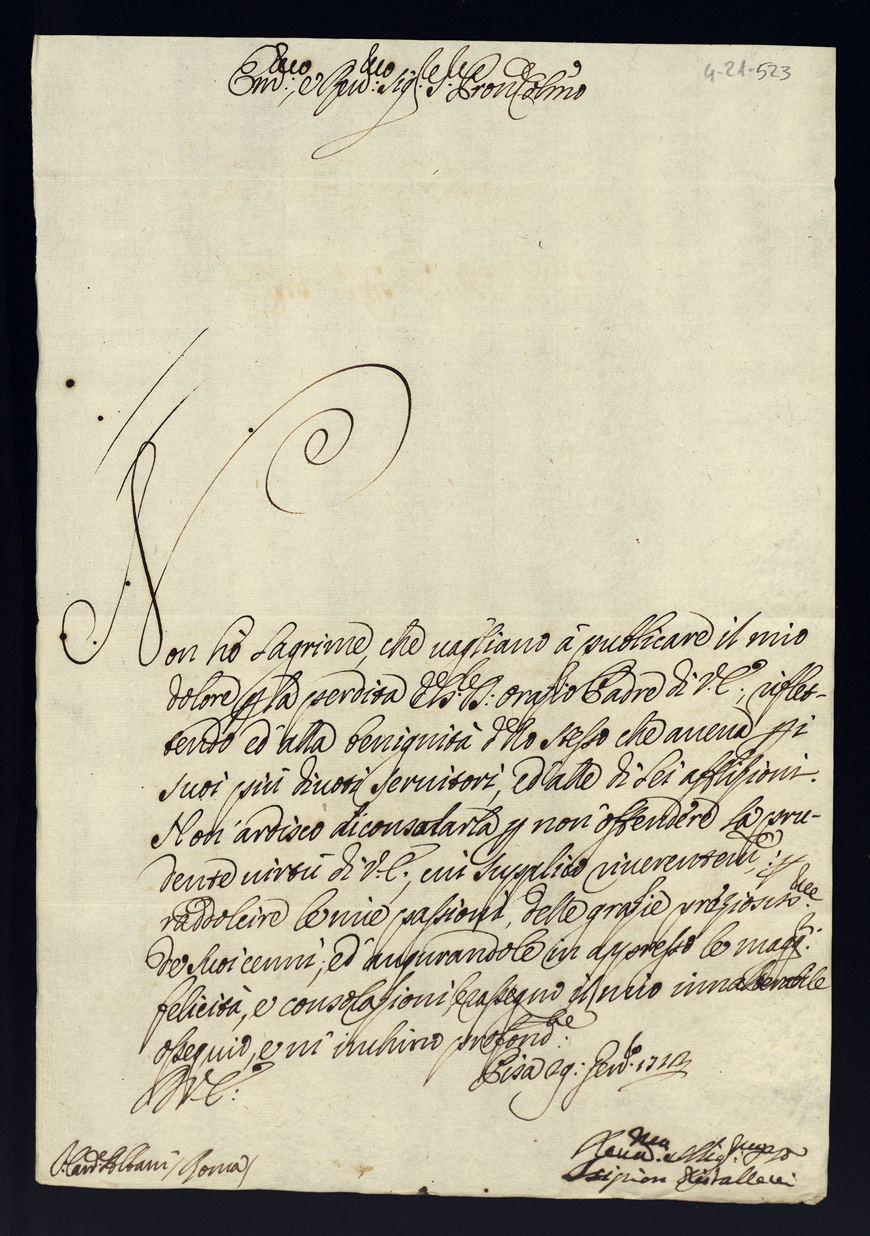 Em.mo, e Reu.mo Sig.re S.re Pron Colmo
4-21-523
Non hò lagrime, che uagliano à publicare il mio
dolore p la perdita del S.r D: Orazio Padre di V.E., riflet-
tendo ed' alla benignità dello stesso che aueua p i
suoi più diuoti seruitori, ed' alle di lei afflizioni.
Non' ardisco di consolarla p non' offendere la pru-
dente uirtù di V.E., mi supplico riuerentem.te, p
raddolcire le mie passioni, delle grazie preziosiss.me
de Suoi cenni, ed' augurandole in appresso le magg.ri
felicità, e consolazioni, rassegno il mio inalterabile
ossequio, e m' inchino profond.te
Pisa 29: Gen.ro 1712
D V.E:
S. Card.e Albani / Roma /
Scipion